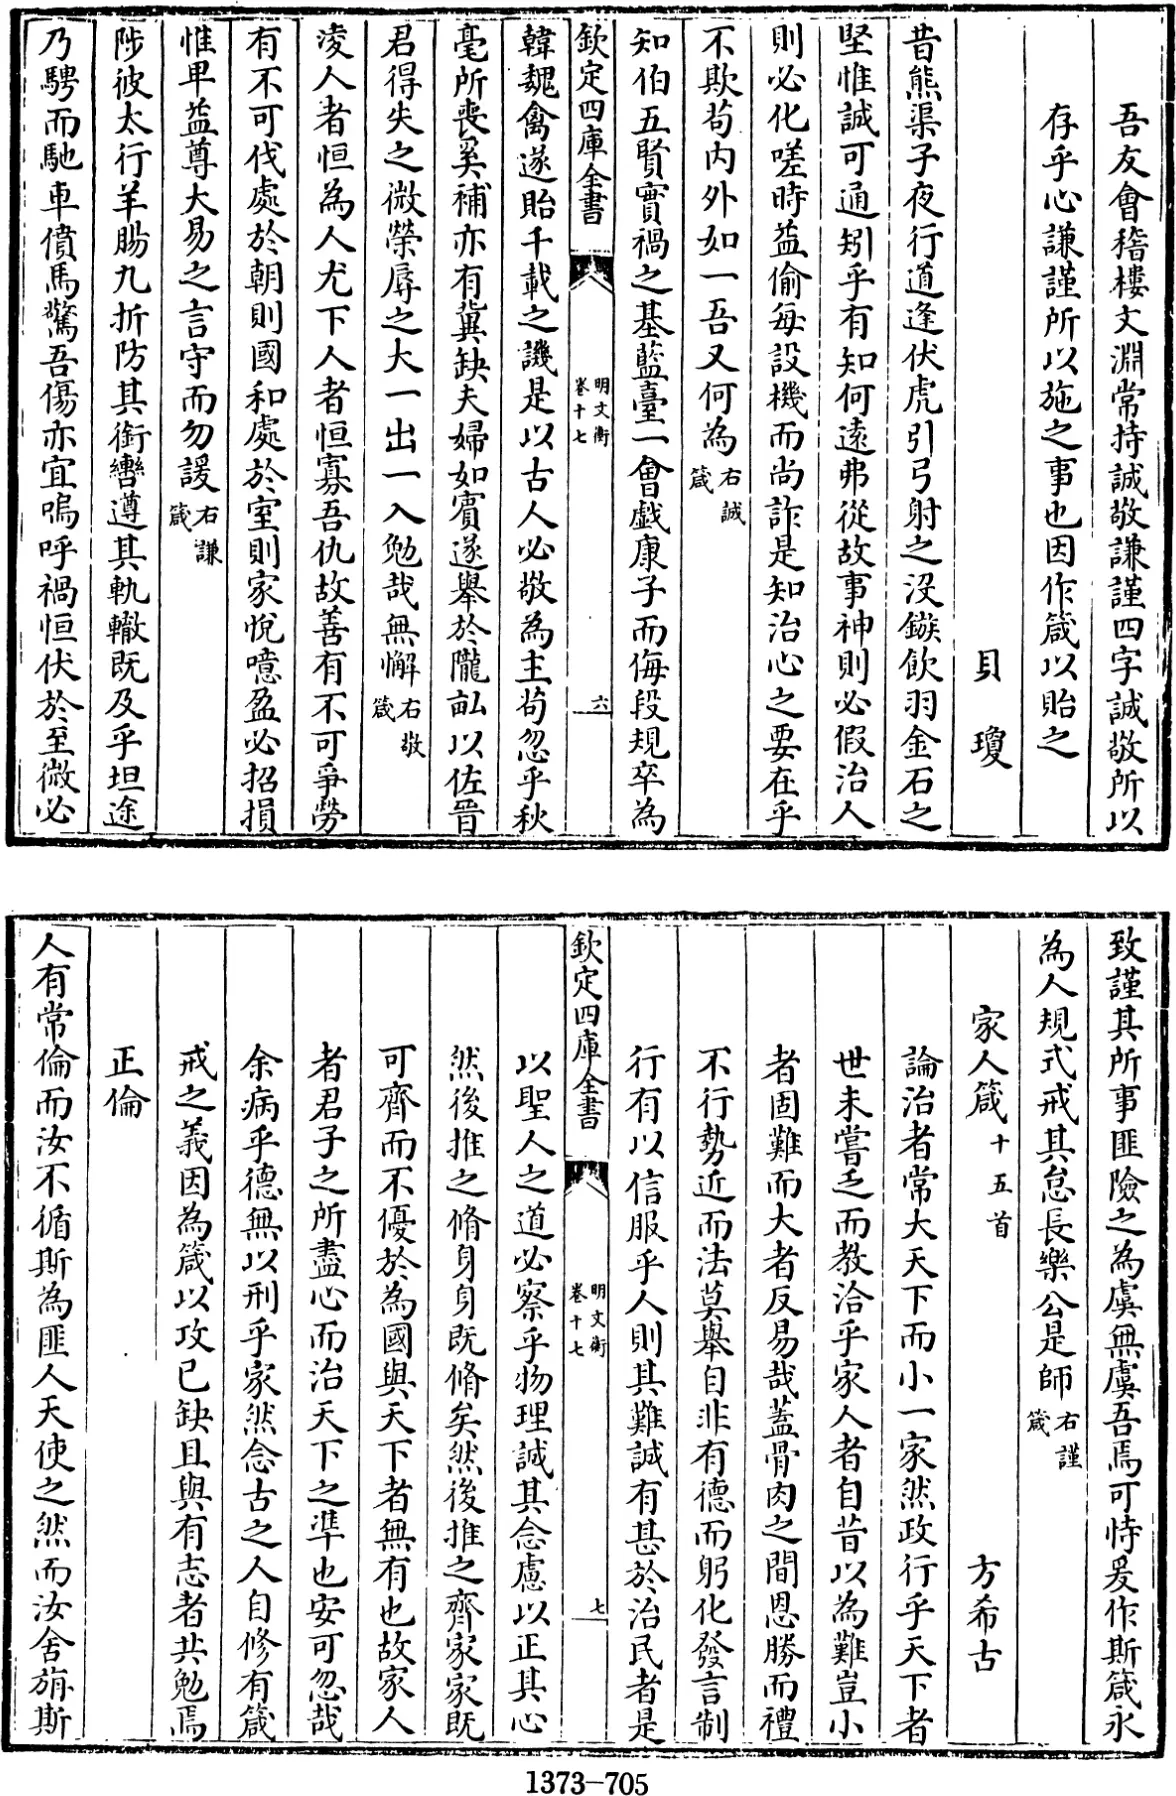 吾友會稽樓文淵常持誠敬謙謹四字誠敬所以
存乎心謙謹所以施之事也因作箴以貽之
貝瓊
昔熊渠子夜行道逢伏虎引弓射之沒鏃飲羽金石之
堅惟誠可通矧乎有知何遠弗從故事神則必假治人
則必化嗟時益偷每設機而尚詐是知治心之要在乎
不欺苟内外如一吾又何為右誠箴
知伯五賢實禍之基藍臺一會戲康子而侮段規卒為
欽定四庫全書 明文衡 卷十七 六
韓魏禽遂貽千載之譏是以古人必敬為主苟忽乎秋
毫所喪奚補亦有冀缺夫婦如賓遂舉於隴畝以佐晉
君得失之微榮辱之大一出一入勉哉無懈右敬箴
凌人者恒為人尤下人者恒寡吾仇故善有不可爭勞
有不可伐處於朝則國和處於室則家悅噫盈必招損
惟卑益尊大易之言守而勿諼右謙箴
陟彼太行羊腸九折防其銜轡遵其軌轍既及乎坦途
乃騁而馳車僨馬驚吾傷亦宜嗚呼禍恒伏於至微必
致謹其所事匪險之為虞無虞吾焉可恃爰作斯箴永
為人規式戒其怠長樂公是師右謹箴
家人箴十五首 方希古
論治者常大天下而小一家然政行乎天下者
世未嘗乏而教洽乎家人者自昔以為難豈小
者固難而大者反易哉蓋骨肉之間恩勝而禮
不行勢近而法莫舉自非有德而躬化發言制
行有以信服乎人則其難誠有甚於治民者是
欽定四庫全書 明文衡 卷十七 七
以聖人之道必察乎物理誠其念慮以正其心
然後推之脩身身既脩矣然後推之齊家家既
可齊而不優於為國與天下者無有也故家人
者君子之所盡心而治天下之準也安可忽哉
余病乎德無以刑乎家然念古之人自修有箴
戒之義因為箴以攻己缺且與有志者共勉焉
正倫
人有常倫而汝不循斯為匪人天使之然而汝舍旃斯
1373-705